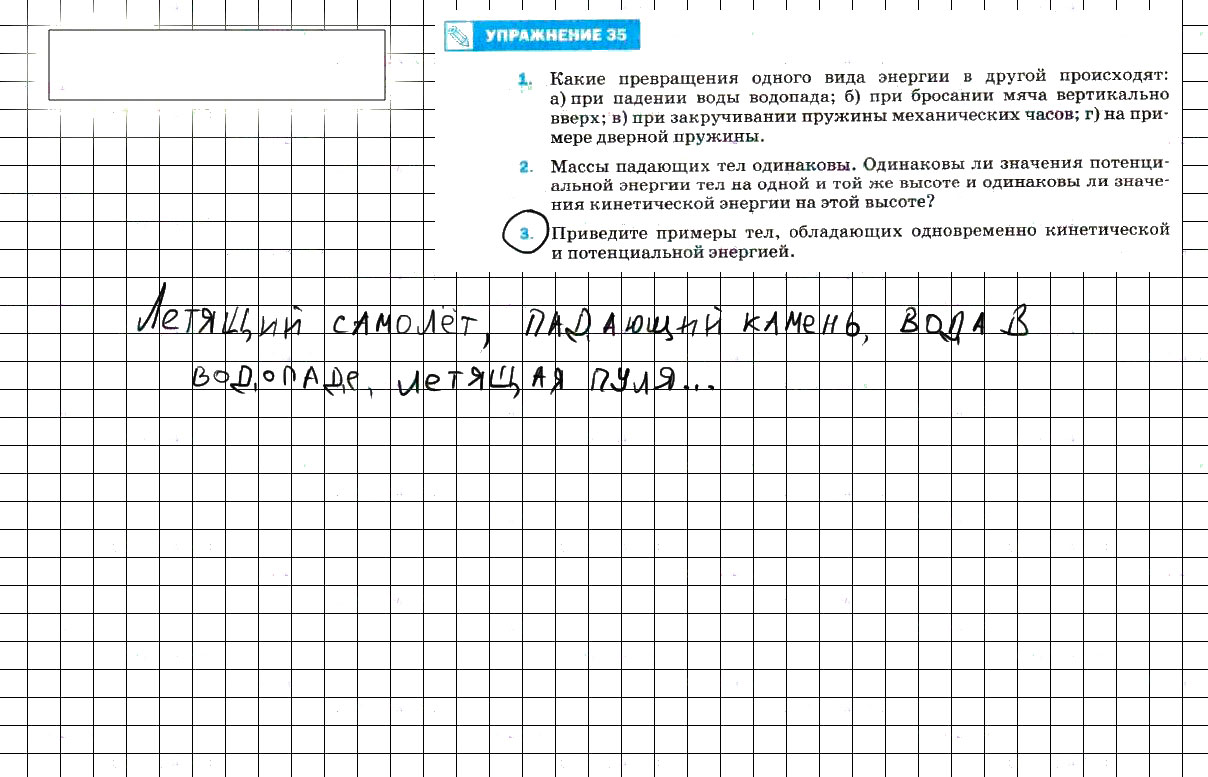 УПРАЖНЕНИЕ 35
1. Какие превращения одного вида энергии в другой происходят:
а) при падении воды водопада; б) при бросании мяча вертикально
вверх; в) при закручивании пружины механических часов; г) на при-
мере дверной пружины.
2. Массы падающих тел одинаковы. Одинаковы ли значения потенци-
альной энергии тел на одной и той же высоте и одинаковы ли значе-
ния кинетической энергии на этой высоте?
3. Приведите примеры тел, обладающих одновременно кинетической
и потенциальной энергией.
Летящий самолёт, падающий камень, вода в
водопаде, летящая пуля...